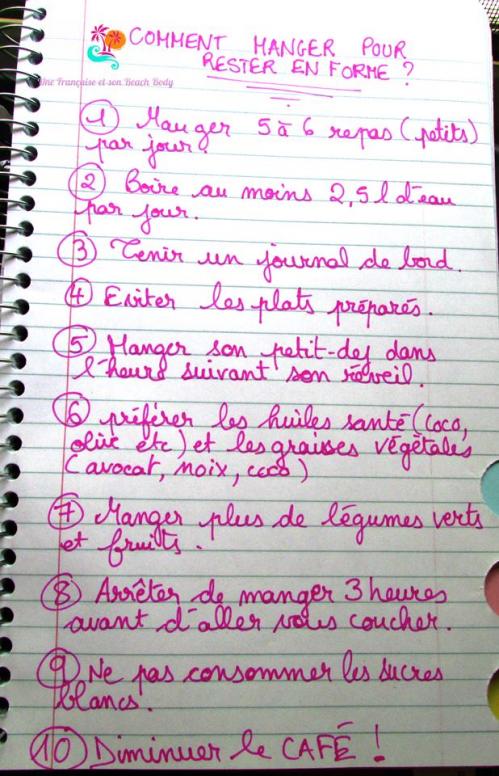 COMMENT MANGER POUR
RESTER EN FORME ?
Une Française et son Beach Body
① Manger 5 à 6 repas (petits)
par jour.
② Boire au moins 2,5 l d'eau
par jour.
③ Tenir un journal de bord.
④ Eviter les plats préparés.
⑤ Manger son petit-dej dans
l'heure suivant son réveil.
⑥ préférer les huiles santé (coco,
olive etc) et les graisses végétales
(avocat, noix, coco)
⑦ Manger plus de légumes verts
et fruits.
⑧ Arrêter de manger 3 heures
avant d'aller vous coucher.
⑨ Ne pas consommer les sucres
blancs.
⑩ Diminuer le CAFÉ !